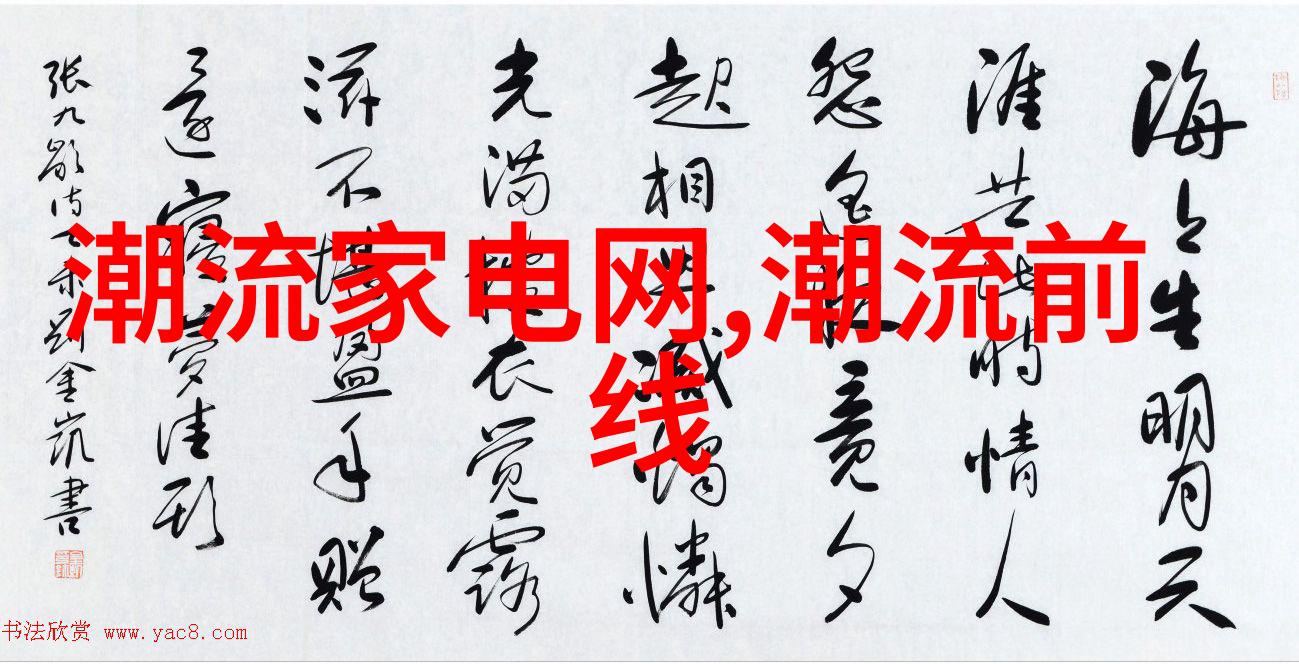 潮流家电网,潮流前
线
海上生明月天
涯共此时情人
怨遥夜竟夕
起相思滅烛怜
光满披衣觉露
滋不堪盈手赠
还寝梦佳期
张九龄诗金凯書
书法欣赏 www.yac8.com